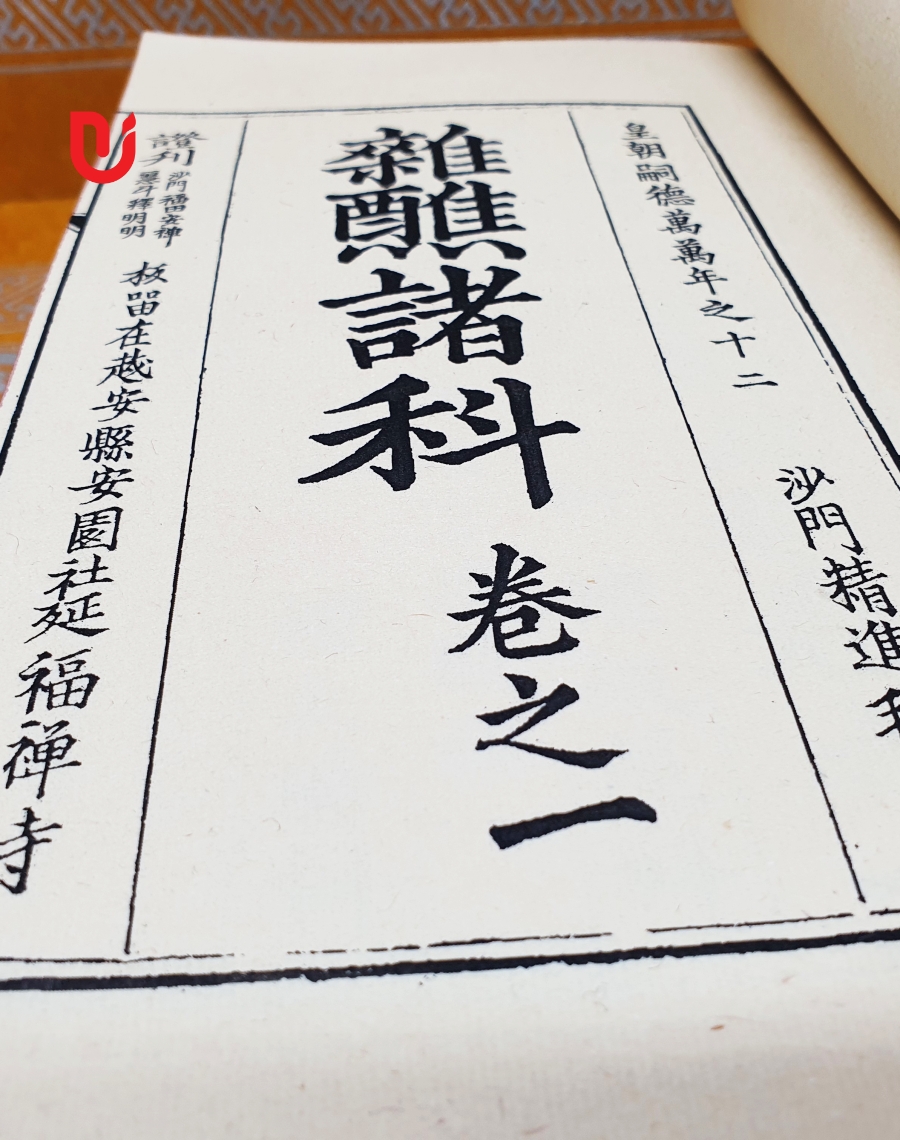 皇朝嗣德萬萬年之十二
沙門精進
雜醮諸科
卷之一
證刋
沙門福田安禅
釋明明
板留在越安縣安園社延福禅寺